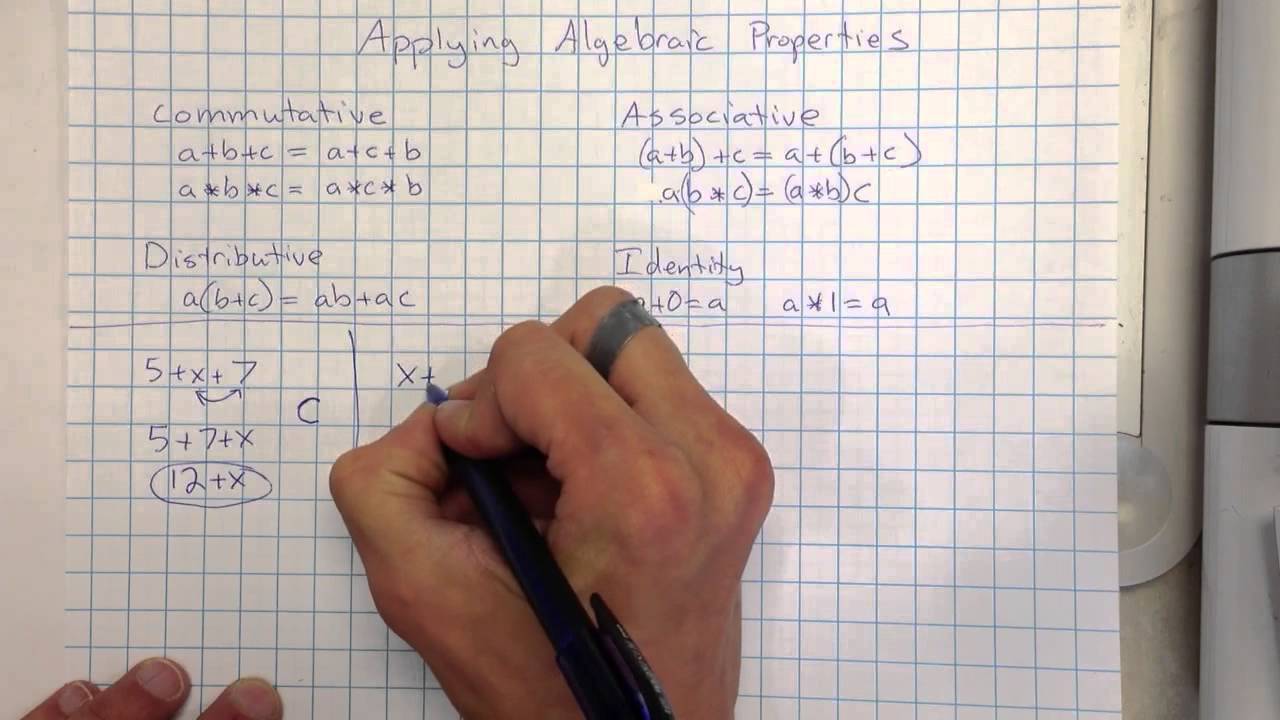 Applying Algebraic Properties
Commutative
a+b+c = a+c+b
a*b*c = a*c*b
Associative
(a+b)+c = a+(b+c)
a(b*c) = (a*b)c
Distributive
a(b+c) = ab+ac
Identity
a+0=a a*1=a
5+x+7
C
5+7+x
12+x
x+